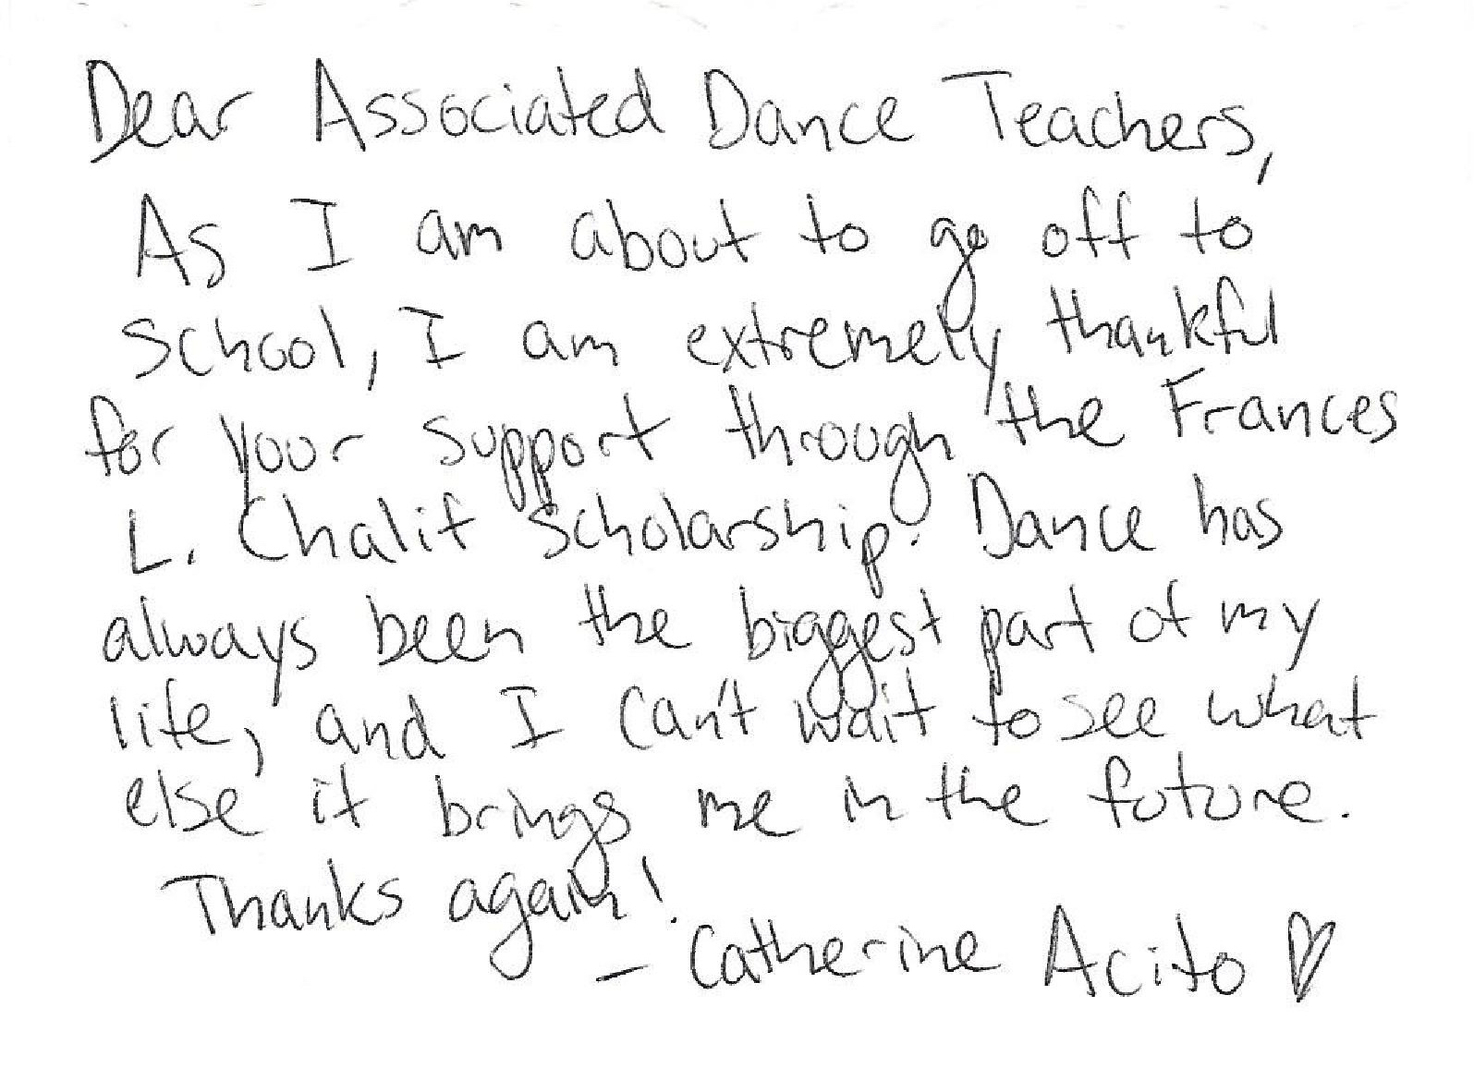 Dear Associated Dance Teachers,
As I am about to go off to
school, I am extremely thankful
for your support through the Frances
L. Chalif Scholarship. Dance has
always been the biggest part of my
life, and I can't wait to see what
else it brings me in the future.
Thanks again!
- Catherine Acito ♡